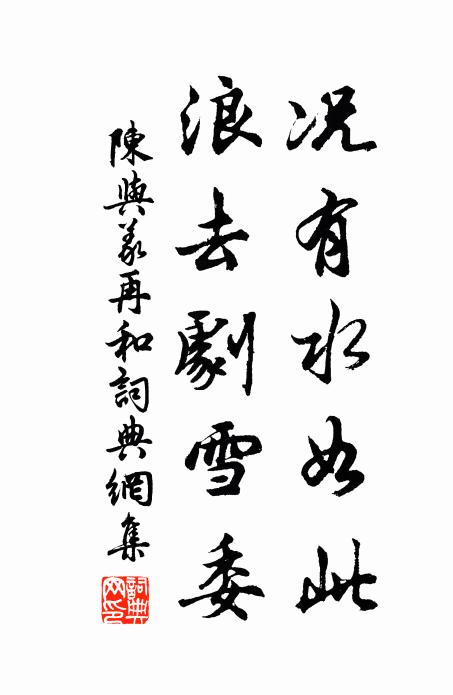 况有水如此
浪去劇雪委
陳與義再和詞典網集
詞典網印